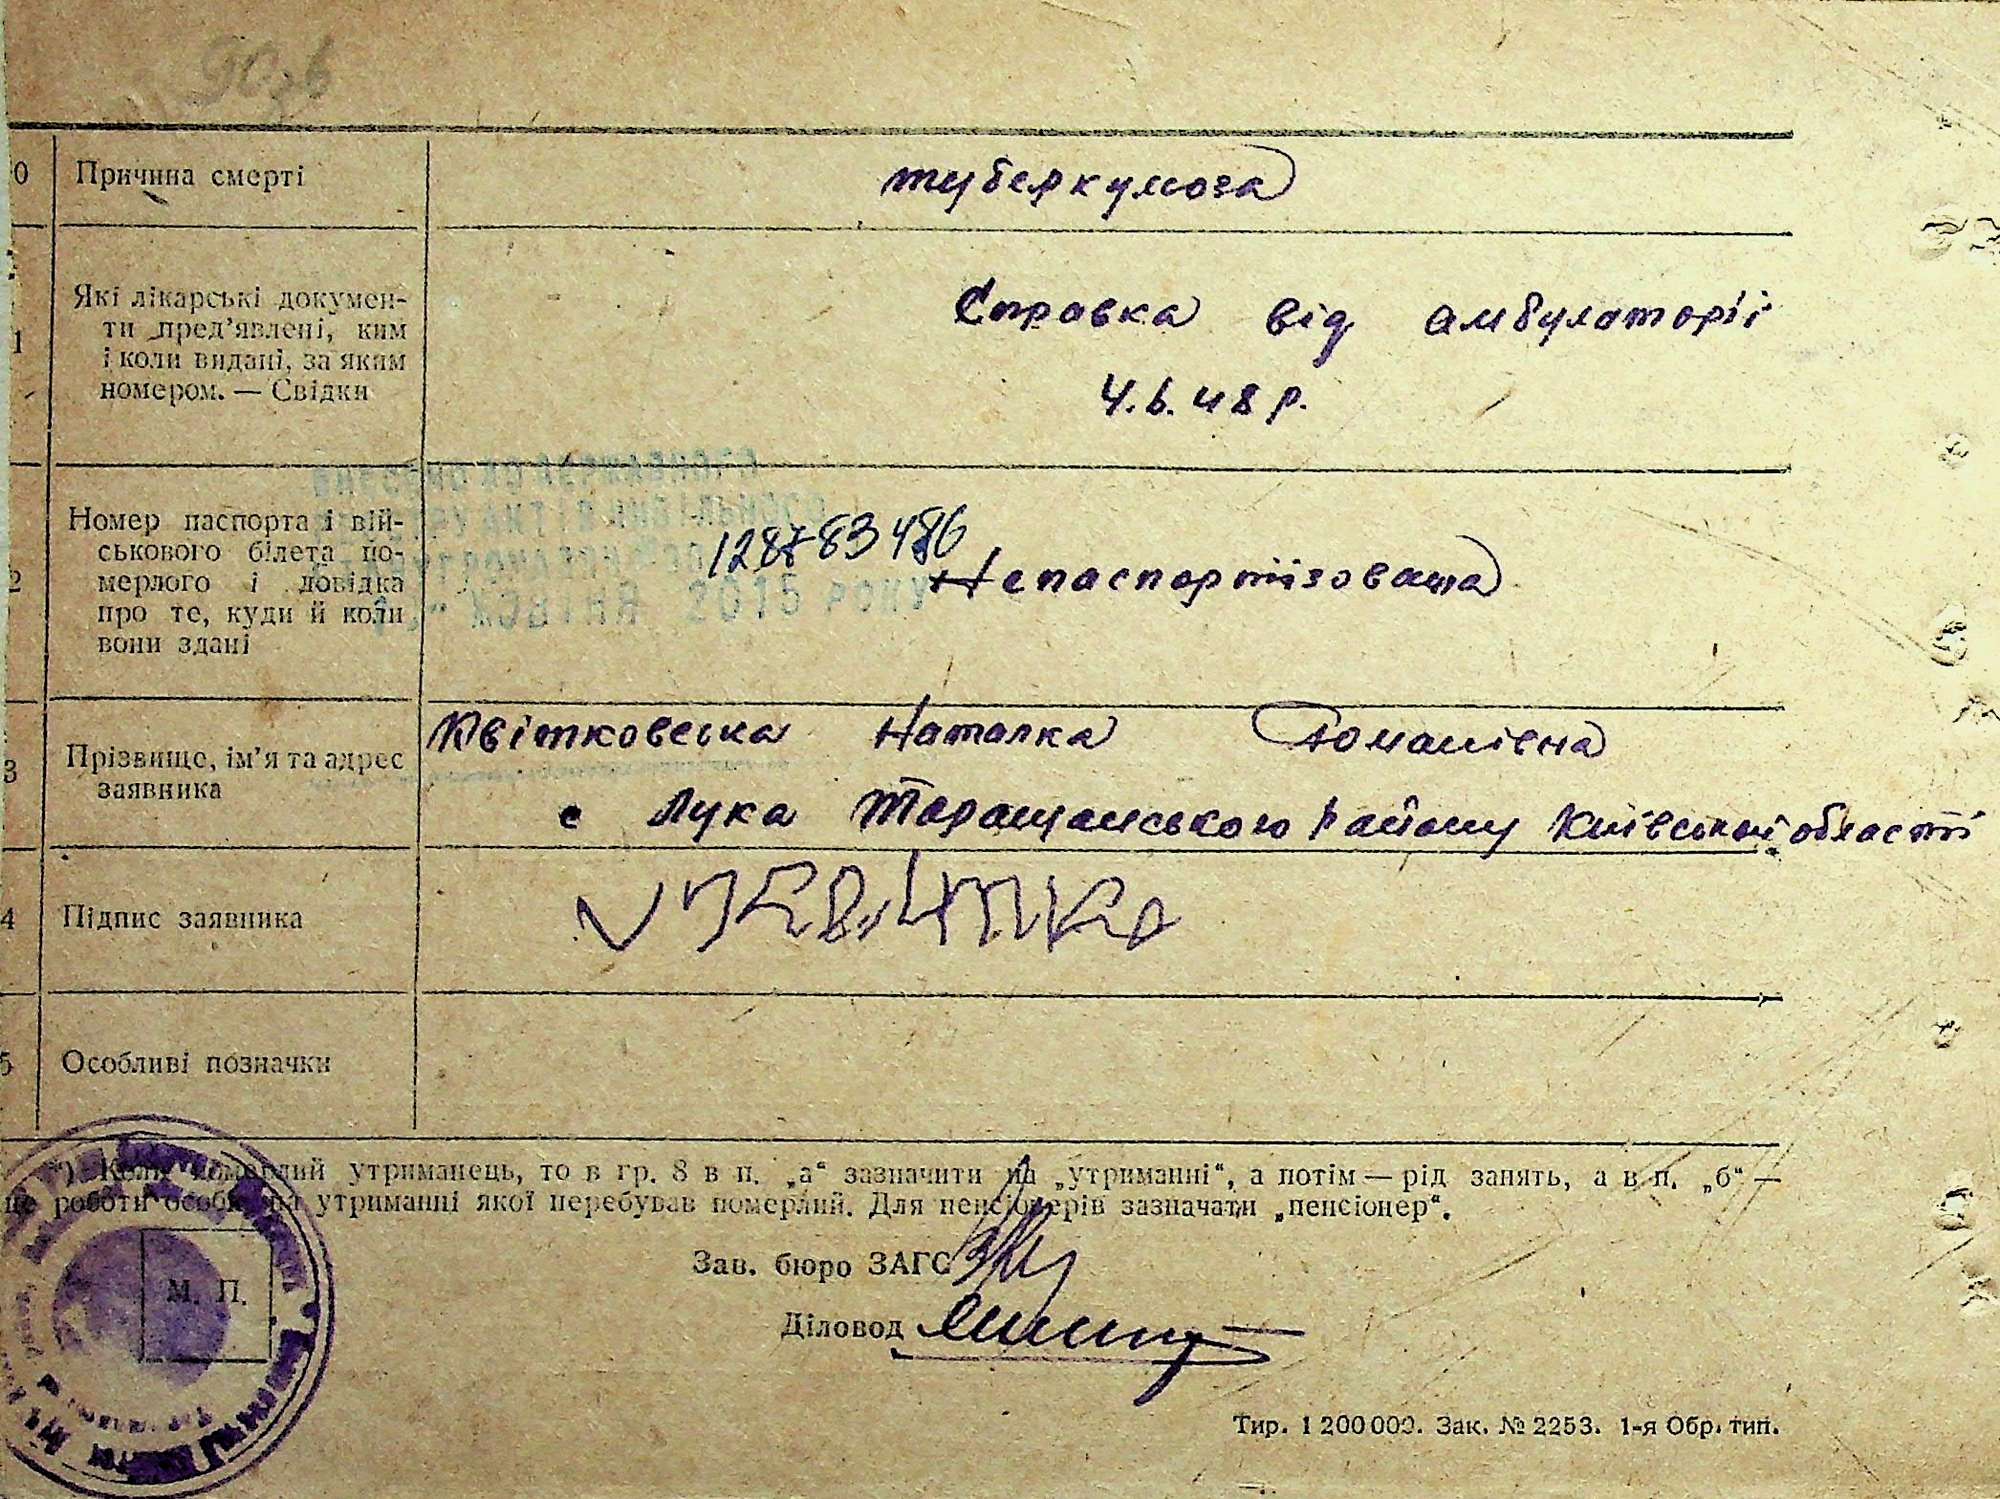 90зв
0 Причина смерті туберкульоза
1 Які лікарські докумен-
ти пред'явлені, ким
і коли видані, за яким
номером. — Свідки
Справка від амбулаторії
4.6.48 р.
ВНЕСЕНО ДО ДЕРЖАВНОГО
РЕЄСТРУ АКТІВ ЦИВІЛЬНОГО
ЖОВТНЯ 2015 РОКУ
2 Номер паспорта і вій-
ськового білета по-
мерлого і довідка
про те, куди й коли
вони здані
128783486
Непаспортізована
3 Прізвище, ім'я та адрес
заявника
Квітковська Наталка Романівна
с Лука Таращанського району Київської області
4 Підпис заявника
5 Особливі позначки
*) Коли померлий утриманець, то в гр. 8 в п. „а“ зазначити на „утриманні“, а потім — рід занять, а в п. „б“ —
це роботи особи, на утриманні якої перебував померлий. Для пенсіонерів зазначати „пенсіонер“.
Зав. бюро ЗАГС
М. П.
Діловод
Тир. 1 200 000. Зак. № 2253. 1-я Обр. тип.